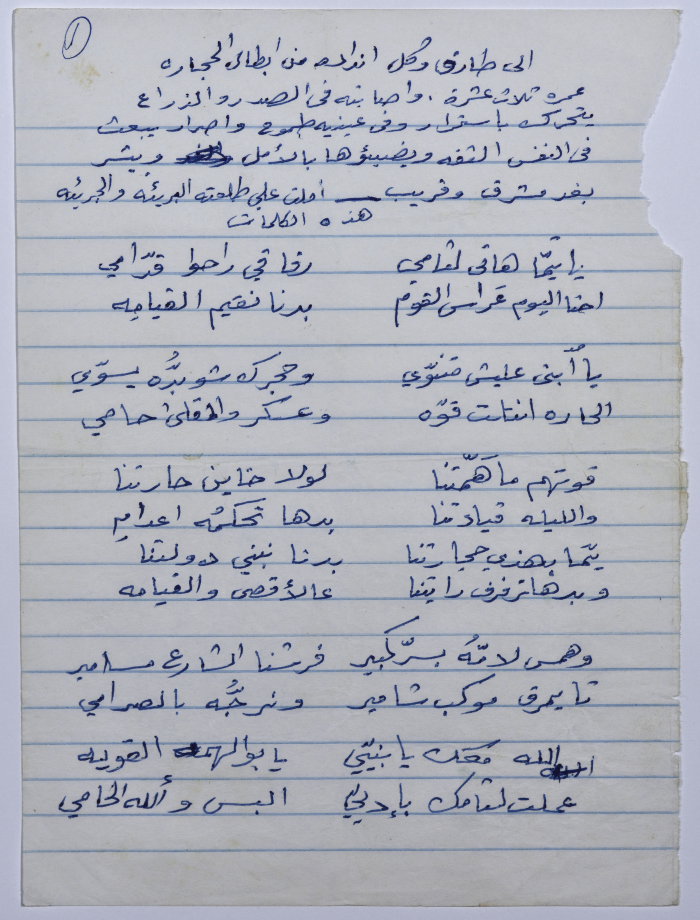 ١
الى طارق وكل انداده من ابطال الحجاره
عمره ثلاث عشرة ، واصابته في الصدر والذراع
يتحرك باستمرار وفي عينيه طموح واصرار يبعث
في النفس الثقه ويضيئوها بالأمل ويبشر
بغد مشرق وقريب — أملت علي طلعته البريئه والجريئه
هذه الكلمات
يا يمّا هاتي لثامي رفاقي راحوا قدّامي
احنا اليوم حراس القوم بدنا نقيم القيامه
يا أبني عليش متنوّي وحجرك شو بدُّه يسوّي
الحاره انتلت قوّه وعسكر والمقلى حامي
قوتهم ما هَمّتنا لولا خاين حارتنا
والليله قيادتنا بدها تحكمُه اعدامِ
يمّا بهذي حجارتنا بدنا نبني دولتنا
وبدها ترفرف رايتنا عالأقصى والقيامه
وهمس لامّهُ بسرّ كبير فرشنا الشارع مسامير
تا يمرق موكب شامير ونرجُّه بالصرامي
الله معك يا بنيّي يا بو الهمه القويه
عملت لثامك بإديّي البس وألله الحامي